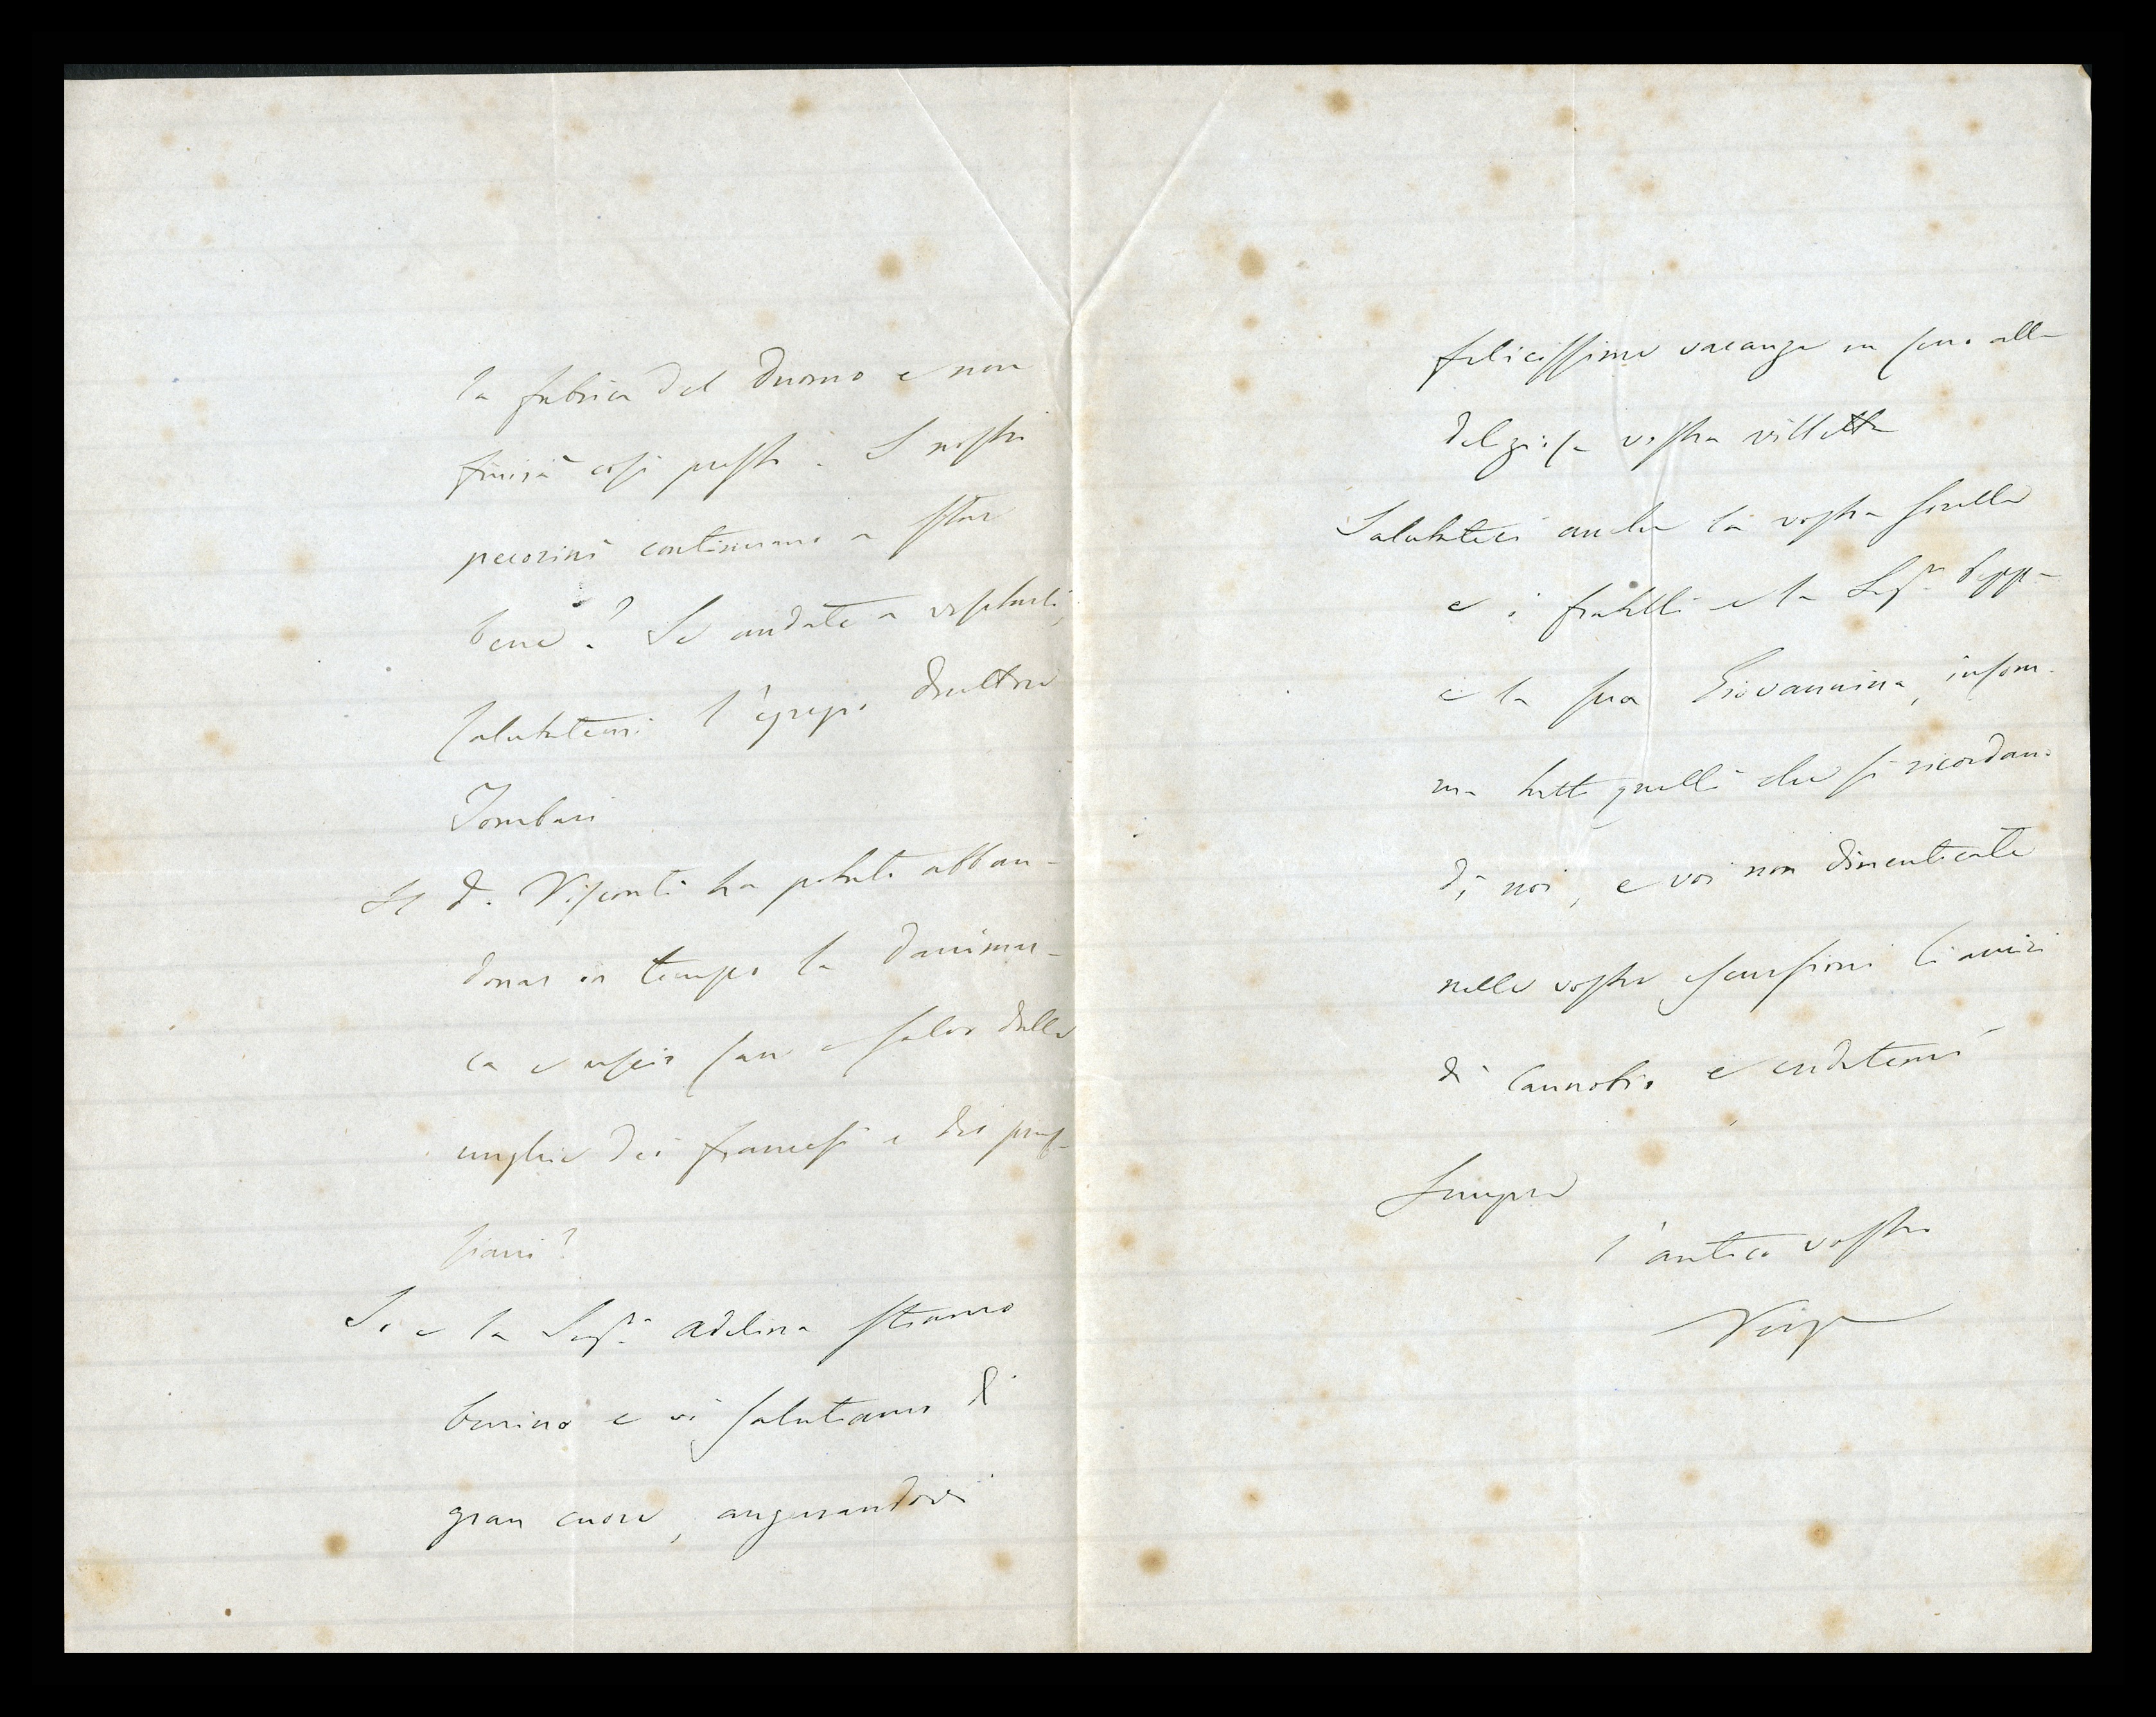 la fabrica del Duomo e non
finirà così presto. I nostri
pecorini continuano a star
bene? Se andate a visitarli,
salutatemi l'egregio direttore
Tombari
Il d. Visconti ha potuto abban-
donar in tempo la Danimar-
ca e uscir san e salvo dalle
unghie dei francesi e dei prus-
siani?
Io e la Sigra Adelina stiamo
benino e vi salutiamo di
gran cuore, augurandovi
felicissime vacanze in seno alla
deliziosa vostra villetta
Salutateci anche la vostra sorella
e i fratelli e la Sigra
e la sua Giovannina, insom-
ma tutti quelli che si ricordano
di noi, e voi non dimenticate
nelle vostre escursioni li amici
di Cannobio e credetemi
Sempre
l'antico vostro